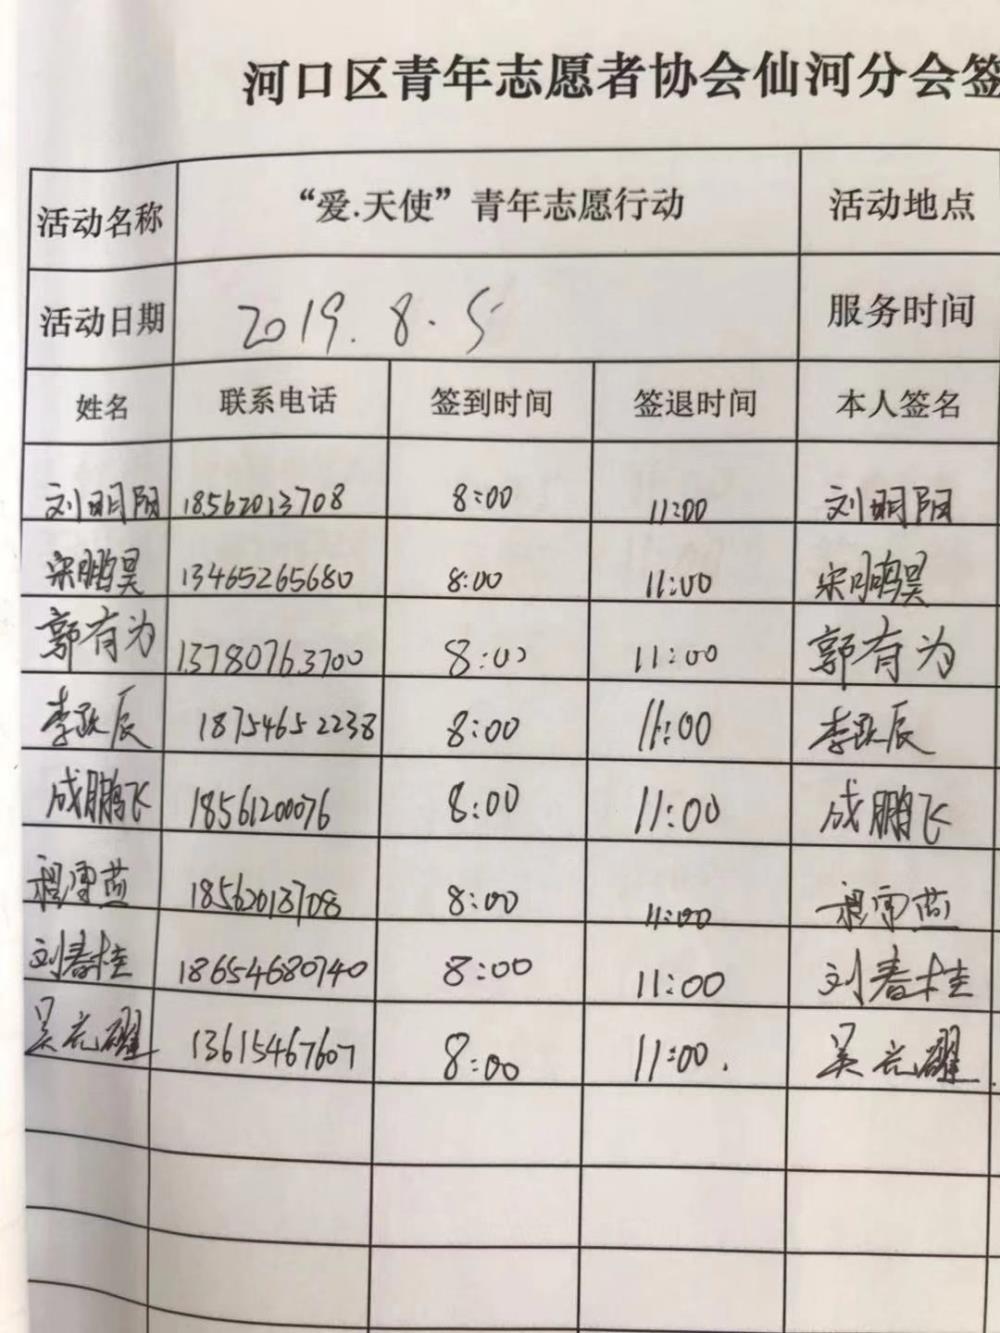 河口区青年志愿者协会仙河分会签
活动名称 “爱.天使”青年志愿行动 活动地点
活动日期 2019.8.5 服务时间
姓名 联系电话 签到时间 签退时间 本人签名
刘明阳 18562013708 8:00 11:00 刘明阳
宋鹏昊 13465265680 8:00 11:00 宋鹏昊
郭有为 13780763700 8:00 11:00 郭有为
李跃辰 18754652238 8:00 11:00 李跃辰
成鹏飞 18561200076 8:00 11:00 成鹏飞
程雪燕 18562013708 8:00 11:00 程雪燕
刘春桂 18654680740 8:00 11:00 刘春桂
吴光耀 13615467607 8:00 11:00. 吴光耀